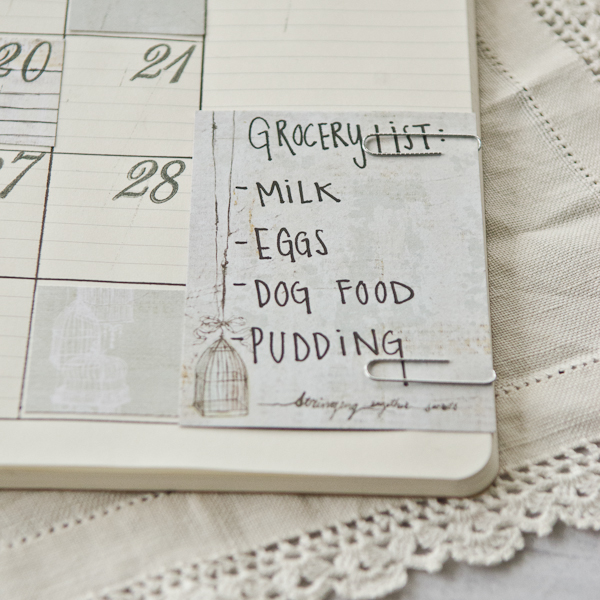 20 21
GROCERY LIST:
- MiLK
27 28
- EGGS
- DOG FOOD
- PUDDiNG